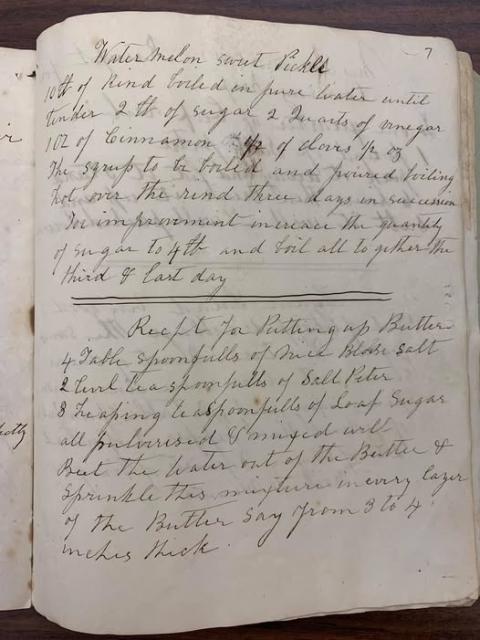 7
Water melon sweet Pickle
10 lb of Rind boiled in pure water until
tender 2 lb of sugar 2 Quarts of vinegar
1 oz of Cinnamon 1/2 of cloves 1/2 oz
The syrup to be boiled and poured boiling
hot over the rind three days in succession
An improvement increace the quantity
of sugar to 4 lb and boil all to gether the
third & last day
Recipt for Putting up Butter
4 Table spoonfulls of nice Blown Salt
2 tea spoonfulls of Salt Peter
8 heaping teaspoonfulls of Loaf Sugar
all pulverised & mixed well
Beet the water out of the Butter &
Sprinkle this mixture in every layer
of the Butter Say from 3 to 4
inches thick.